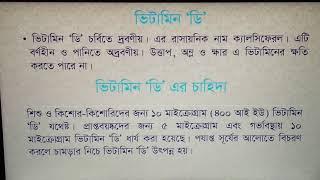 ভিটামিন ‘ডি’
• ভিটামিন ‘ডি’ চর্বিতে দ্রবণীয়। এর রাসায়নিক নাম ক্যালসিফেরল। এটি
বর্ণহীন ও পানিতে অদ্রবণীয়। উত্তাপ, অম্ল ও ক্ষার এ ভিটামিনের ক্ষতি
করতে পারে না।
ভিটামিন ‘ডি’ এর চাহিদা
শিশু ও কিশোর-কিশোরিদের জন্য ১০ মাইক্রোগ্রাম (৪০০ আই ইউ) ভিটামিন
‘ডি’ যথেষ্ট। প্রাপ্তবয়স্কদের জন্য ৫ মাইক্রোগ্রাম এবং গর্ভাবস্থায় ১০
মাইক্রোগ্রাম ভিটামিন ‘ডি’ ধার্য করা হয়েছে। পর্যাপ্ত সূর্যের আলোতে বিচরণ
করলে চামড়ার নিচে ভিটামিন ‘ডি’ উৎপন্ন হয়।